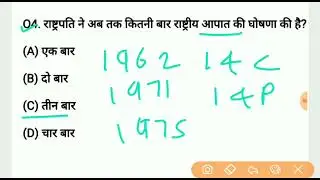 Q4. राष्ट्रपति ने अब तक कितनी बार राष्ट्रीय आपात की घोषणा की है?
(A) एक बार
(B) दो बार
(C) तीन बार
(D) चार बार
1962 14C
1971 14P
1975